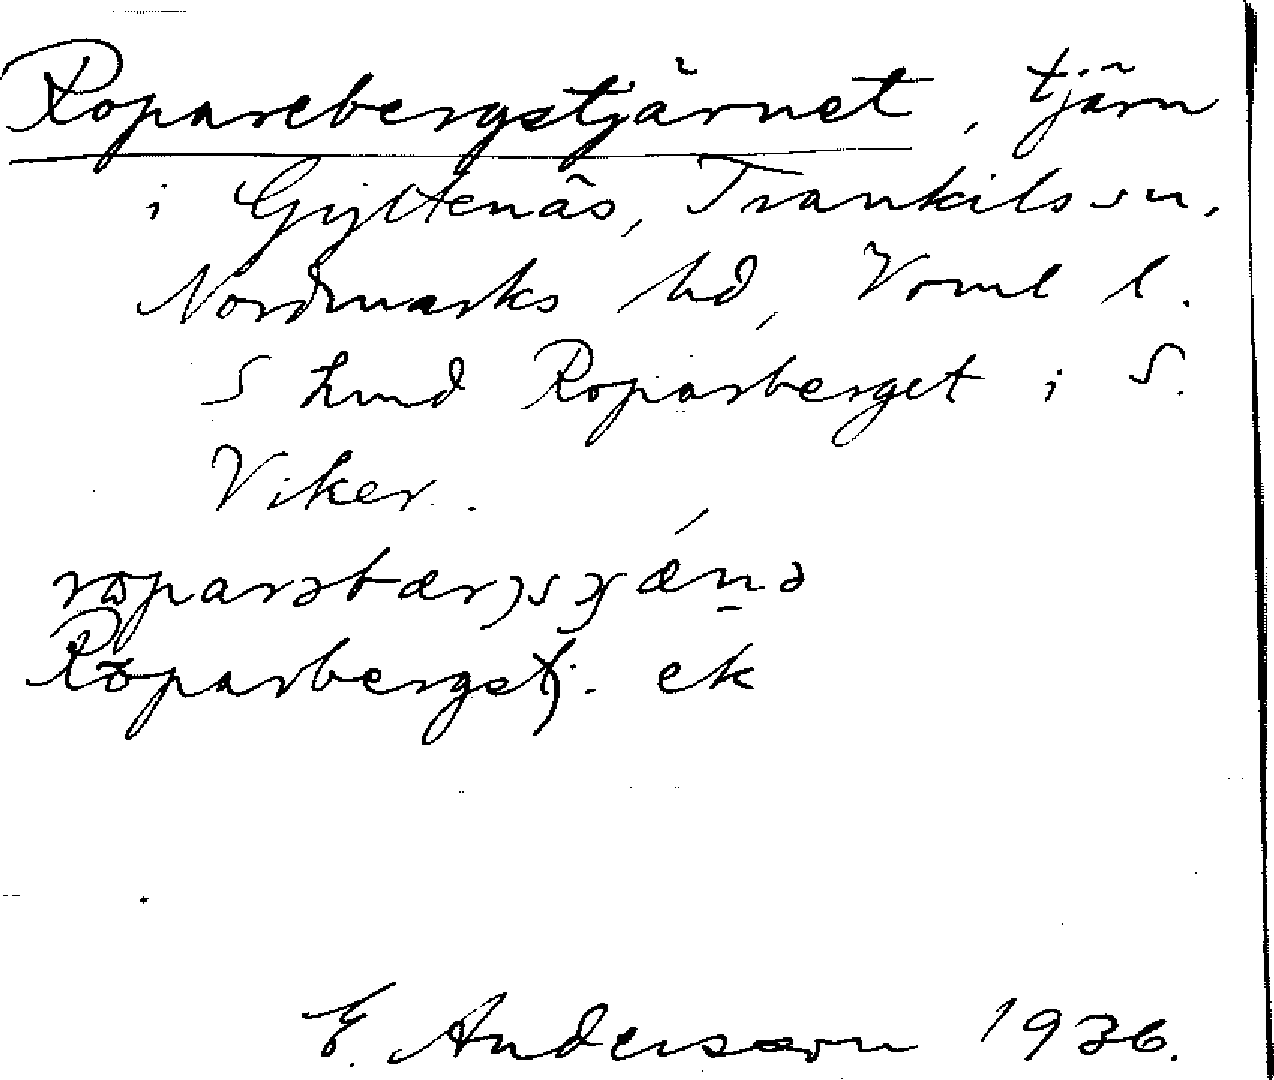 Roparebergstjärnet, tjärn
i Gyltenäs, Trankils sn.
Nordmarks hd, Vrml l.
S Roparberget i S.
Viker.
Roparbergstj. ek
E. Andersson 1936.